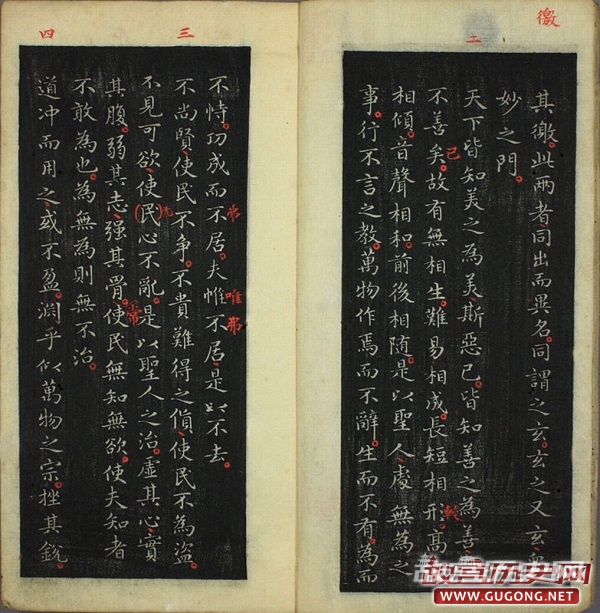 徼
二
其徼。此兩者同出而異名。同謂之玄。玄之又玄。衆
妙之門。
天下皆知美之為美。斯惡已。皆知善之為善
己
不善矣。故有無相生。難易相成。長短相形。高
較
相傾。音聲相和。前後相隨。是以聖人處無為之
事。行不言之教。萬物作焉而不辭。生而不有。為而
三
四
不恃。功成而不居。夫惟不居。是以不去。
弗
唯弗
不尚賢。使民不争。不貴難得之貨。使民不為盜。
不見可欲。使(民)心不亂。是以聖人之治。虛其心。實
其腹。弱其志。強其骨。使民無知無欲。使夫知者
常
不敢為也。為無為則無不治。
道冲而用之。或不盈。渊乎似萬物之宗。挫其銳。
故宫历史网
WWW.GUGONG.NET